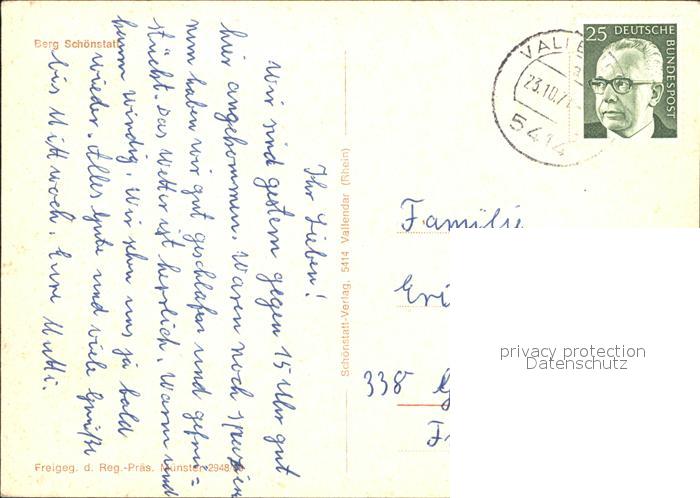 Berg Schönstatt
Ihr Lieben!
Wir sind gestern gegen 15 Uhr gut
hier angekommen. Waren noch spazieren
nun haben wir gut geschlafen und gefrü=
stückt. Das Wetter ist herrlich. Warm und
kaum windig. Wir sehn uns ja bald
wieder. Alles Gute und viele Grüße
bis Mittwoch. Eure Mutti.
Freigeg. d. Reg.-Präs. Münster 2948
Schönstatt-Verlag, 5414 Vallendar (Rhein)
VALLE
23.10.71
5414
25 DEUTSCHE
BUNDESPOST
Familie
Eri
338 G
privacy protection
Datenschutz